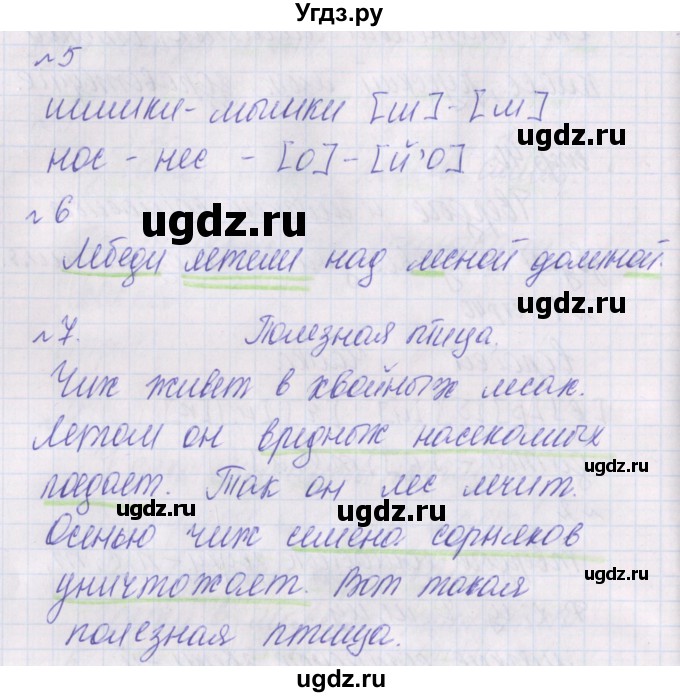 Угдз.ру
№5
шишки - мышки [ш] - [м]
нос - нес - [о] - [й'о]
ugdz.ru
№6
ugdz.ru
Лебеди летели над лесной долиной.
ugdz.ru
ugdz.ru
№7. Полезная птица.
Чиж живет в хвойных лесах.
ugdz.ru
Летом он вредных насекомых
ugdz.ru
поедает. Так он лес лечит.
ugdz.ru
ugdz.ru
Осенью чиж семена сорняков
уничтожает. Вот такая
ugdz.ru
полезная птица.
ugdz.ru